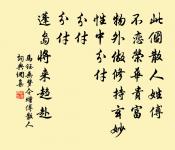 此個散人姓傅
不戀榮華貴富
物外做修持玄妙
性中分付
分付
蓬島將來趕赴
馬鈺無夢令 贈傅散人
詞典網集